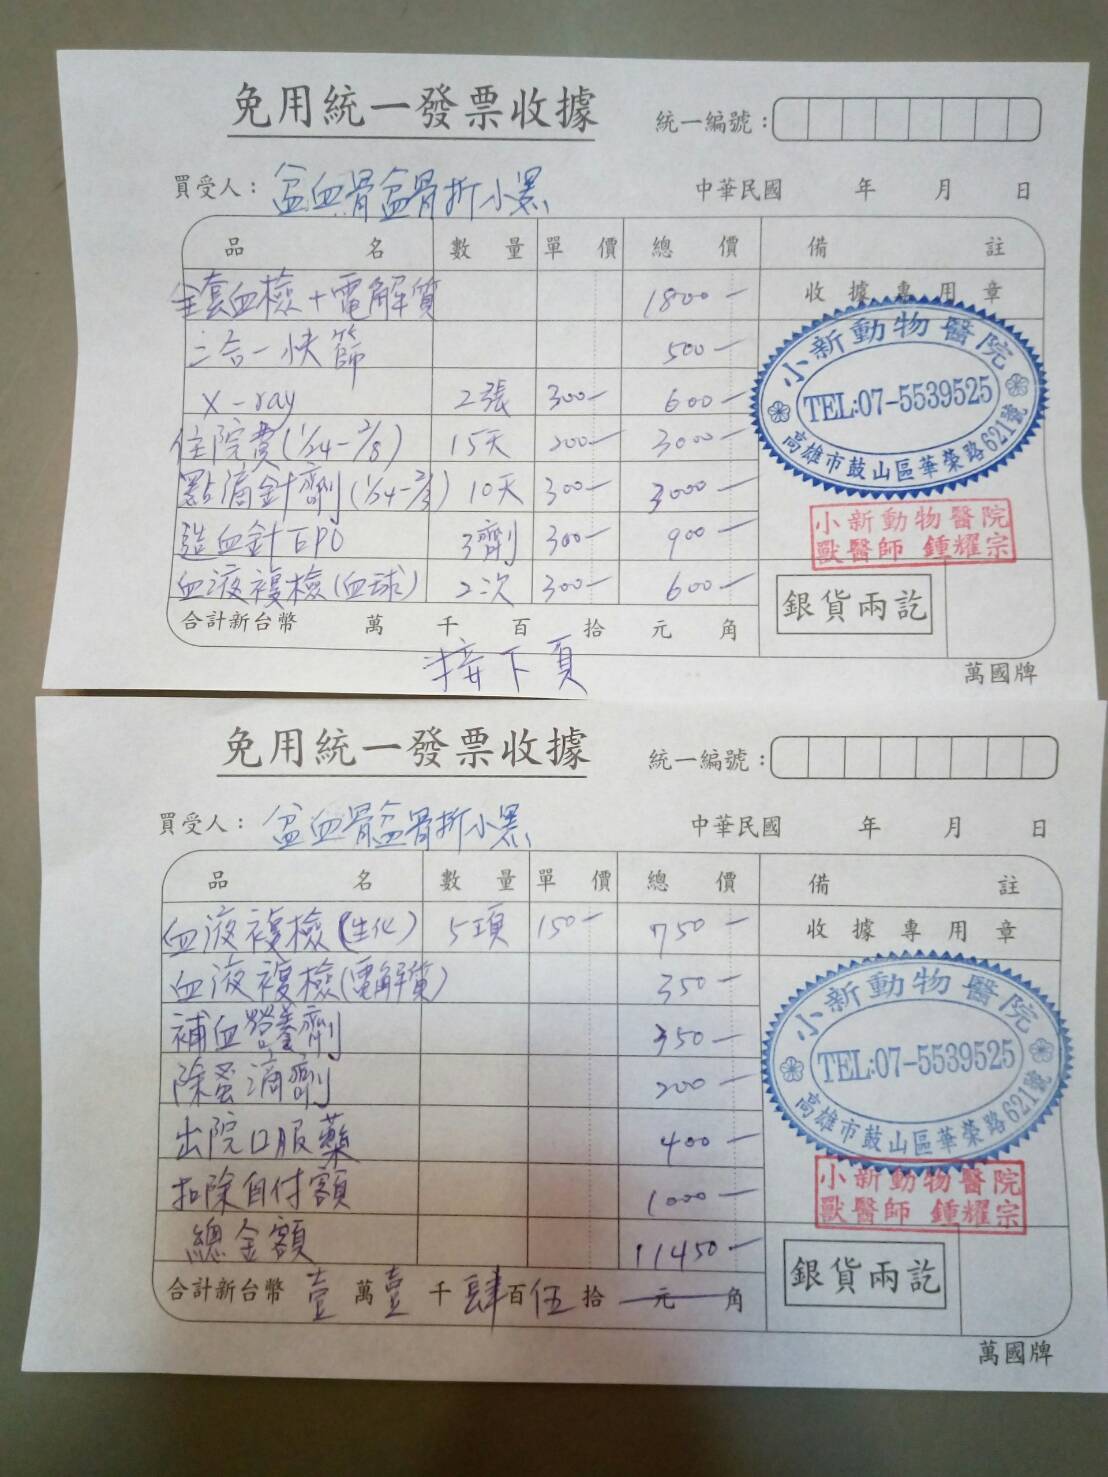 免用統一發票收據
統一編號：
買受人：盆血骨盆骨折小黑
中華民國 年 月 日
品 名 數 量 單 價 總 價 備 註
全套血檢+電解質 1800-
收據專用章
三合一快篩 500-
X-ray 2張 300- 600-
住院費(1/24-2/8) 15天 200- 3000-
點滴針劑(1/24-2/3) 10天 300- 3000-
造血針EPO 3劑 300- 900-
血液複檢(血球) 2次 300- 600-
小新動物醫院
TEL:07-5539525
高雄市鼓山區華榮路621號
小新動物醫院
獸醫師 鍾耀宗
銀貨兩訖
合計新台幣 萬 千 百 拾 元 角
接下頁
萬國牌
免用統一發票收據
統一編號：
買受人：盆血骨盆骨折小黑
中華民國 年 月 日
品 名 數 量 單 價 總 價 備 註
血液複檢(生化) 5項 150- 750-
收據專用章
血液複檢(電解質) 350-
補血營養劑 350-
除蚤滴劑 200-
出院口服藥 400-
扣除自付額 1000-
總金額 11450-
小新動物醫院
TEL:07-5539525
高雄市鼓山區華榮路621號
小新動物醫院
獸醫師 鍾耀宗
銀貨兩訖
合計新台幣 壹 萬 壹 千 肆 百 伍 拾 元 角
萬國牌